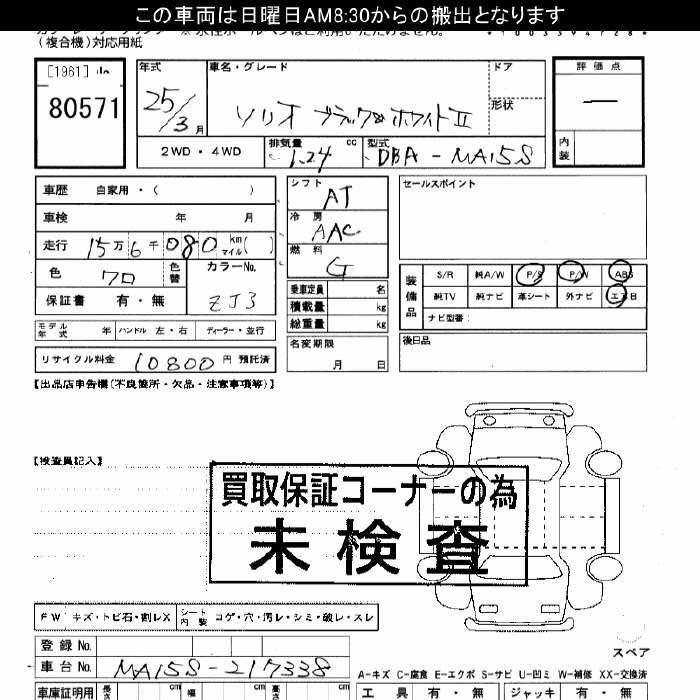 この車両は日曜日AM8:30からの搬出となります
(複合機)対応用紙
[1961]
80571
年式
25/3月
車名・グレード
ソリオ ブラック&ホワイトⅡ
ドア
形状
評価点
内装
2WD・4WD
排気量
1.24 cc
型式
DBA-MA15S
車歴 自家用・( )
車検 年 月
走行 15万6千080 km マイル( )
色 クロ
色替
カラーNo.
ZJ3
保証書 有・無
モデル年式 年 ハンドル 左・右 ディーラー・並行
リサイクル料金 10800円 預託済
シフト
AT
冷房
AAC
燃料
G
乗車定員 名
積載量 kg
総重量 kg
名変期限
月 日
セールスポイント
装備品
S/R 純A/W P/S P/W ABS
純TV 純ナビ 革シート 外ナビ エアB
ナビ型番:
後日品
【出品店申告欄(不良箇所・欠品・注意事項等)】
【検査員記入】
買取保証コーナーの為
未検査
FW キズ・トビ石・割レX
シート内装 コゲ・穴・汚レ・シミ・破レ・スレ
スペア
登録No.
車台No. MA15S-217338
A-キズ C-腐食 E-エクボ S-サビ U-凹ミ W-補修 XX-交換済
車庫証明用 長さ cm 幅 cm 高さ cm
工具 有・無 ジャッキ 有・無